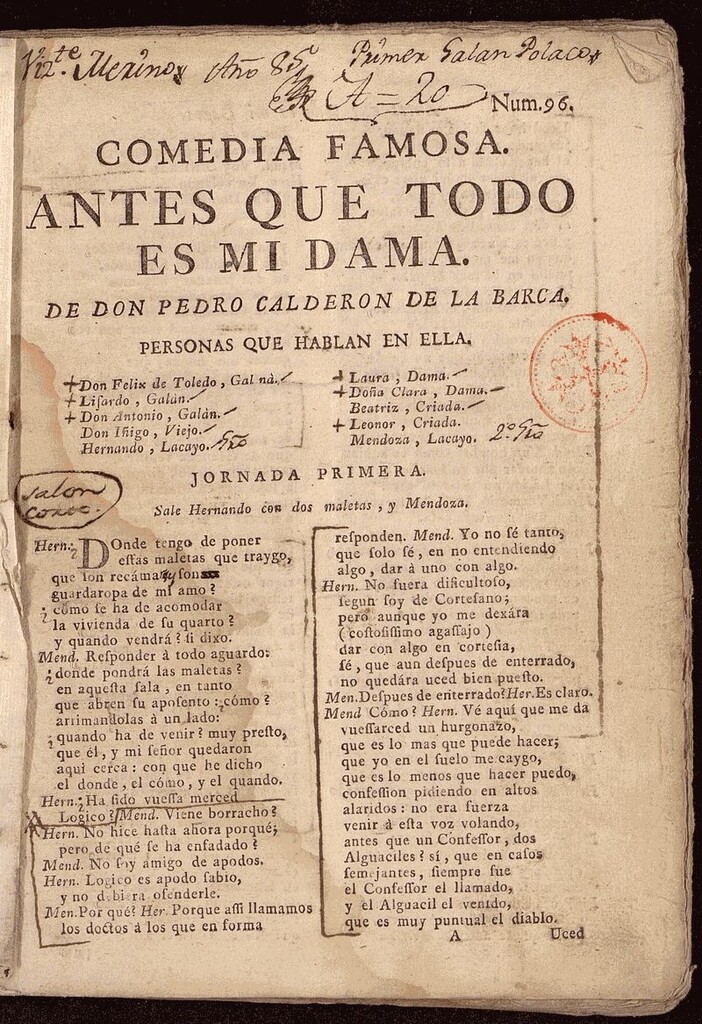 Vizte. Merino Año 85 Primer Galan Polaco
A = 20
Num.96.
COMEDIA FAMOSA.
ANTES QUE TODO
ES MI DAMA.
DE DON PEDRO CALDERON DE LA BARCA.
PERSONAS QUE HABLAN EN ELLA.
Don Felix de Toledo, Galàn.
Liſardo, Galàn.
Don Antonio, Galàn.
Don Iñigo, Viejo.
Hernando, Lacayo. Gro
Laura, Dama.
Doña Clara, Dama.
Beatriz, Criada.
Leonor, Criada.
Mendoza, Lacayo. 2º Gro
JORNADA PRIMERA.
salon
corto.
Sale Hernando con dos maletas, y Mendoza.
Hern. ¿DOnde tengo de poner
eſtas maletas que traygo,
que ſon recámara, y ſon
guardaropa de mi amo?
¿cómo ſe ha de acomodar
la vivienda de ſu quarto?
y quando vendrá? ſi dixo.
Mend. Responder à todo aguardo:
¿donde pondrá las maletas?
en aqueſta ſala, en tanto
que abren ſu aposento: ¿cómo?
arrimandolas à un lado:
¿quando ha de venir? muy preſto,
que él, y mi ſeñor quedaron
aqui cerca: con que he dicho
el donde, el cómo, y el quando.
Hern. ¿Ha ſido vueſſa merced
Logico? Mend. Viene borracho?
Hern. No hice haſta ahora porqué;
pero de qué ſe ha enfadado?
Mend. No ſoy amigo de apodos.
Hern. Logico es apodo ſabio,
y no debiera ofenderle.
Men. Por qué? Her. Porque aſſi llamamos
los doctos à los que en forma
responden. Mend. Yo no ſé tanto,
que ſolo ſé, en no entendiendo
algo, dar à uno con algo.
Hern. No fuera dificultoſo,
ſegun ſoy de Corteſano;
pero aunque yo me dexára
(coſtoſiſſimo agaſſajo)
dar con algo en corteſia,
ſé, que aun despues de enterrado,
no quedára uced bien pueſto.
Men. Despues de enterrado? Her. Es claro.
Mend Cómo? Hern. Vé aquì que me da
vueſſarced un hurgonazo,
que es lo mas que puede hacer;
que yo en el ſuelo me caygo,
que es lo menos que hacer puedo,
confeſſion pidiendo en altos
alaridos: no era fuerza
venir à eſta voz volando,
antes que un Confeſſor, dos
Alguaciles? sí, que en caſos
ſemejantes, ſiempre fue
el Confeſſor el llamado,
y el Alguacil el venido,
que es muy puntual el diablo.
A
Uced